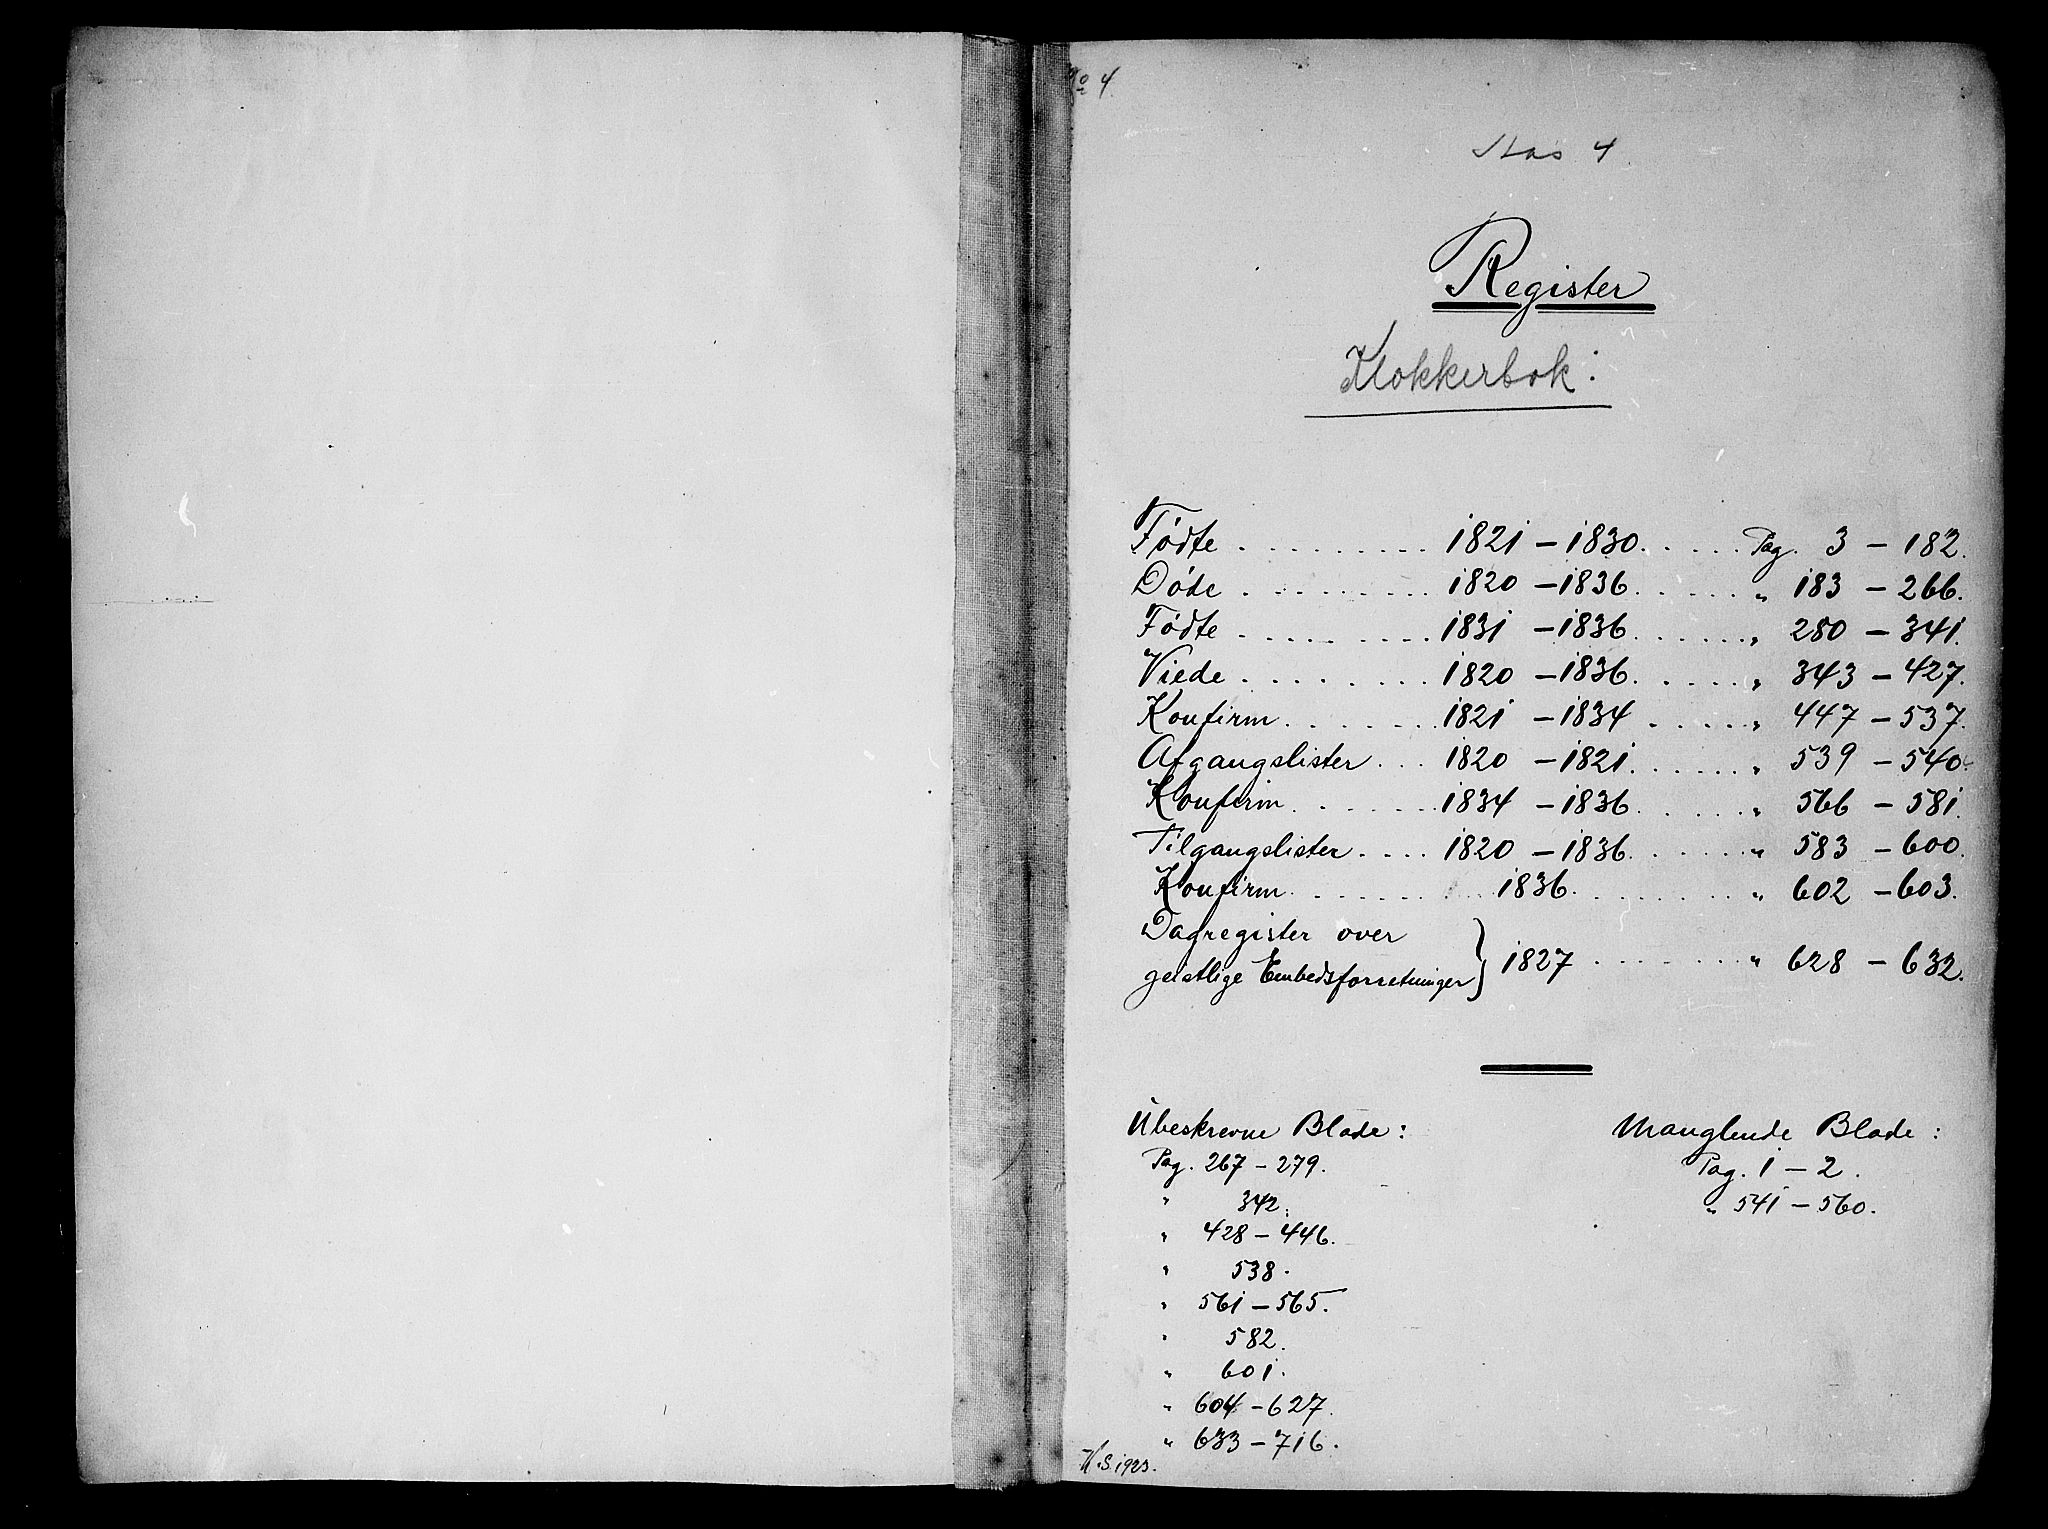 No 4.
4
Register
Klokkerbok:
Fødte . . . . . . . . . 1821 – 1830. . . . . . Pag. 3 – 182.
Døde . . . . . . . . . 1820 – 1836. . . . . . " 183 – 266.
Fødte . . . . . . . . . 1831 – 1836. . . . . . " 280 – 341.
Viede . . . . . . . . . 1820 – 1836. . . . . . " 343 – 427.
Konfirm. . . . . . . . 1821 – 1834 . . . . . . " 447 – 537.
Afgangslister . . . 1820 – 1821. . . . . . " 539 – 540.
Konfirm. . . . . . . 1834 – 1836. . . . . . " 566 – 581.
Tilgangslister . . . . 1820 – 1836. . . . . . " 583 – 600.
Konfirm. . . . . . . . 1836. . . . . . . . . " 602 – 603.
Dagregister over
geistlige Embedsforretninger } 1827 . . . . . . . " 628 – 632.
Ubeskrevne Blade: Manglende Blade:
Pag. 267 – 279. Pag. 1 – 2.
" 342. " 541 – 560.
" 428 – 446.
" 538.
" 561 – 565.
" 582.
" 601.
" 604 – 627.
" 633 – 716.
H.S. 1923.